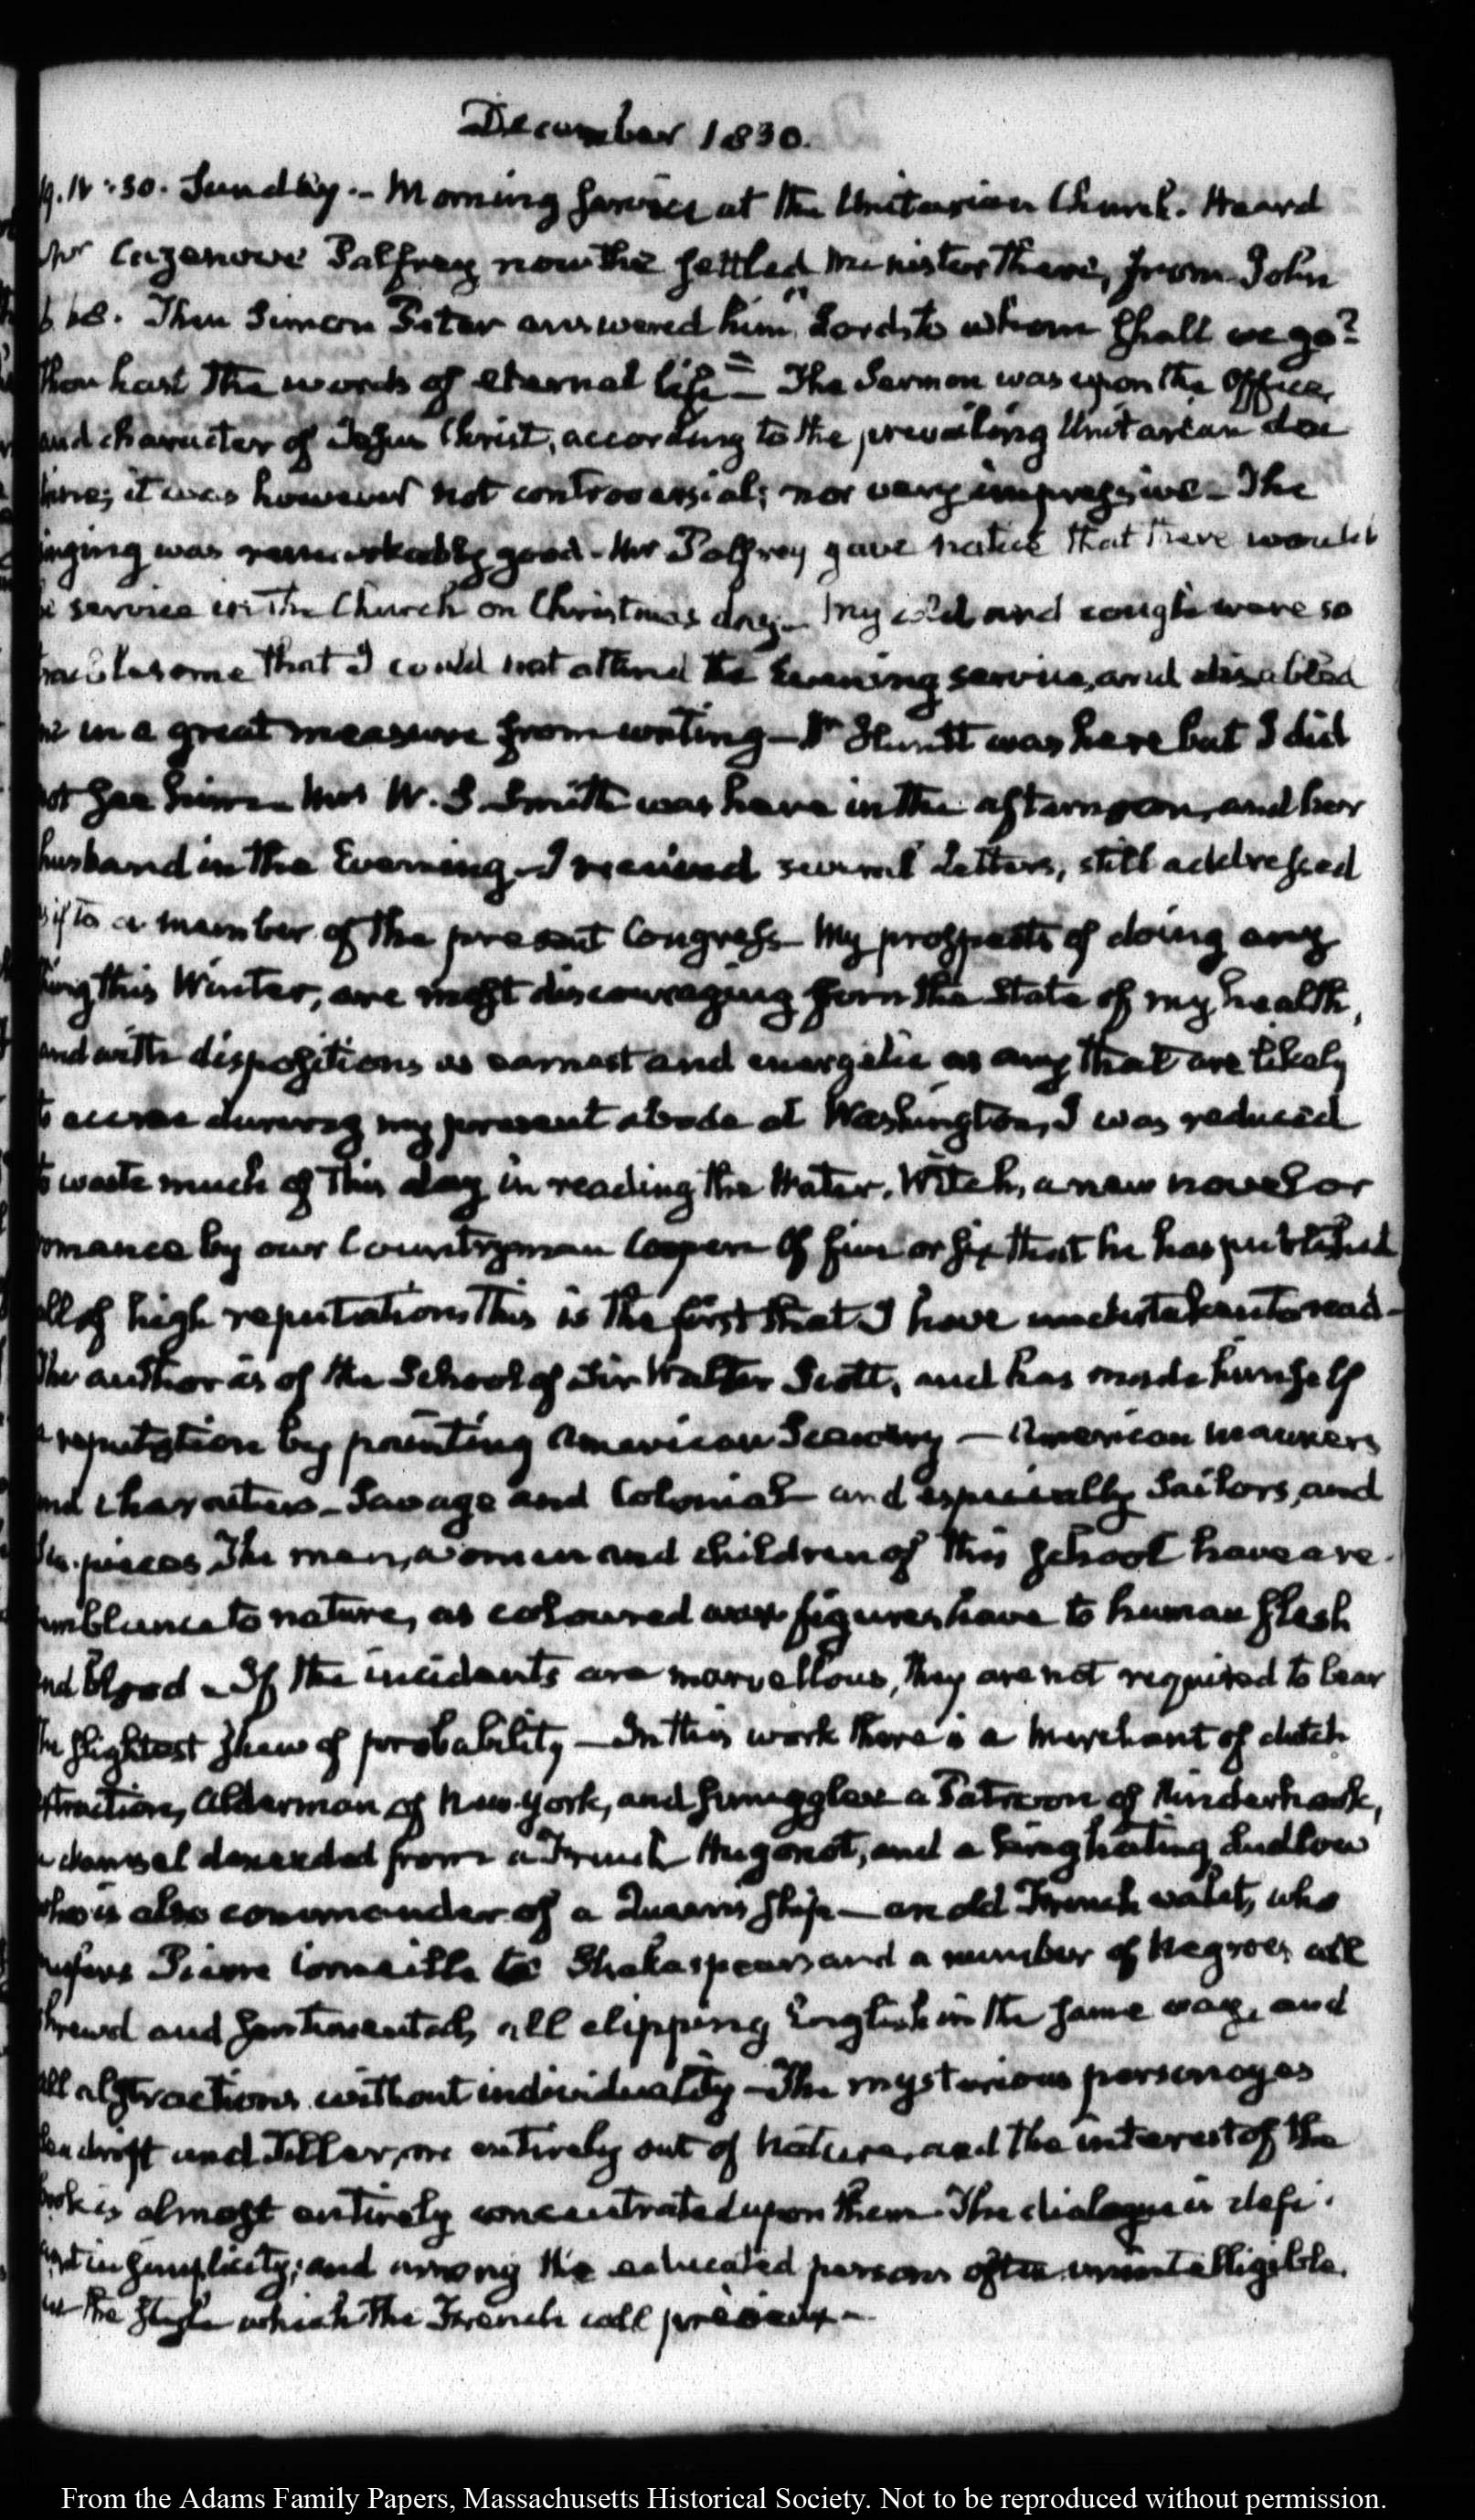 December 1830.
19. IV:30. Sunday.- Morning service at the Unitarian Church. Heard
Mr Cazenove Palfrey now the settled minister there, from John
6 68. Then Simon Peter answered him, Lord to whom shall we go?
Thou hast the words of eternal life= The Sermon was upon the office,
and character of Jesus Christ, according to the prevailing Unitarian doc
trine; it was however not controversial; nor very impressive- The
singing was remarkably good- Mr Palfrey gave notice that there would
be service in the Church on Christmas day- My cold and cough were so
troublesome that I could not attend the Evening service, and disabled
me in a great measure from writing- Dr Huntt was here but I did
not see him- Mrs W. S. Smith was here in the afternoon, and her
husband in the Evening- I received several Letters, still addressed
as if to a member of the present Congress- My prospects of doing any
thing this Winter, are most discouraging from the State of my health,
and with dispositions as earnest and energetic as any that are likely
to occur during my present abode at Washington, I was reduced
to waste much of this day in reading the Water-Witch, a new novel or
romance by our Countryman Cooper. Of five or six that he has published
all of high reputation, this is the first that I have undertaken to read-
The author is of the School of Sir Walter Scott, and has made himself
a reputation by painting American Scenery - American manners
and characters- Savage and Colonial- and especially Sailors, and
Sea-pieces. The men, women and children of this school have a re-
semblance to nature, as coloured wax figures have to human flesh
and blood- If the incidents are marvellous, they are not required to bear
the slightest shew of probability- In this work there is a Merchant of dutch
extraction, Alderman of New-York, and smuggler- a Patroon of Kinderhook,
a damsel descended from a French Hugonot, and a king hating Ludlow
who is also commander of a Queen's ship- an old French valet, who
prefers Pierre Corneille to Shakespear and a number of Negroes all
shrewd and sentimental, all clipping English in the same way, and
all abstractions without individuality- The mysterious personages
Seadrift and Tiller, are entirely out of Nature, and the interest of the
book is almost entirely concentrated upon them- The dialogue is defi-
cient in simplicity; and among the educated persons often unintelligible.
in the style which the French call precieux-
From the Adams Family Papers, Massachusetts Historical Society. Not to be reproduced without permission.